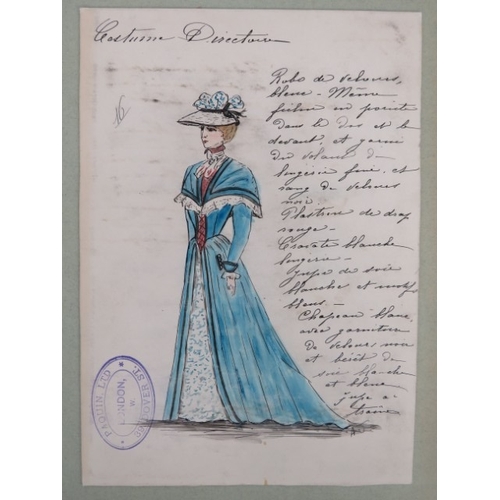 Costume Directoire
16
Robe de velours
bleue - Même
fichu en pointe
dans le dos et le
devant, et garni
du volant de
lingerie fine, et
rang de velours
noir.
Plastron de drap
rouge -
Cravate blanche
lingerie -
Jupe de soie
blanche et motifs
bleus -
Chapeau blanc,
avec garniture
de velours noir
et de
soie blanche
et bleue
Jupe à
traîne
PAQUIN LTD
HANOVER ST.
LONDON
W